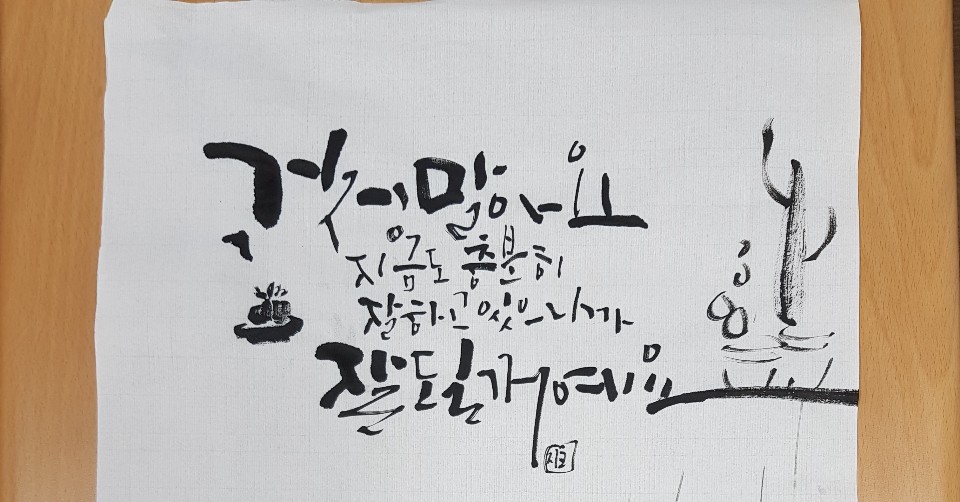 걱정말아요
지금도 충분히
잘하고 있으니까
잘될거예요